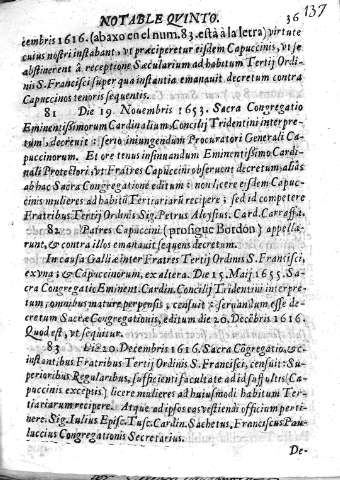 NOTABLE QVINTO. 36 137
cembris 1616. (abaxo en el num. 83. està à la letra) virtute
cuius nostri instabant, vt præciperetur eisdem Capuccinis, vt se
abstinerent à receptione Sæcularium ad habitum Tertij Ordi-
nis S. Francisci super qua instantia emanauit decretum contra
Capuccinos tenoris sequentis.
81 Die 19. Nouembris 1653. Sacra Congregatio
Eminentissimorum Cardinalium, Concilij Tridentini interpre-
tum, decreuit: serio iniungendum Procuratori Generali Ca-
puccinorum. Et ore tenus insinuandum Eminentissimo Cardi-
nali Protectori, vt Fratres Capuccini obseruent decretum, aliàs
ab hac Sacra Congregatione editum: non licere eisdem Capuc-
cinis mulieres ad habitũ Tertiariarũ recipere; sed id competere
Fratribus Tertij Ordinis Sig. Petrus Aloysius. Card. Carraffa.
82. Patres Capuccini (prosigue Bordon) appella-
runt, & contra illos emanauit sequens decretum.
In causa Galliæ inter Fratres Tertij Ordinis S. Francisci,
ex vna; & Capuccinorum, ex altera. Die 15. Maij 1655. Sa-
cra Congregatio Eminent. Cardin. Concilij Tridentini interpre-
tum, omnibus mature perpensis, censuit: seruandum esse de-
cretum Sacræ Congregationis, editum die 20. Decẽbris 1616.
Quod est, vt sequitur.
83 Die 20. Decembris 1616. Sacra Cõgregatio, &c
instantibus Fratribus Tertij Ordinis S. Francisci, censuit: Su-
perioribus Regularibus, sufficienti facultate ad id suffultis (Ca-
puccinis exceptis) licere mulieres ad huiusmodi habitum Ter-
tiariarum recipere. Atque ad ipsos eas vestiendi officium perti-
nere. Sig. Iulius Episc. Tusc. Cardin. Sachetus, Franciscus Pau-
luccius Congregationis Secretarius.
De-